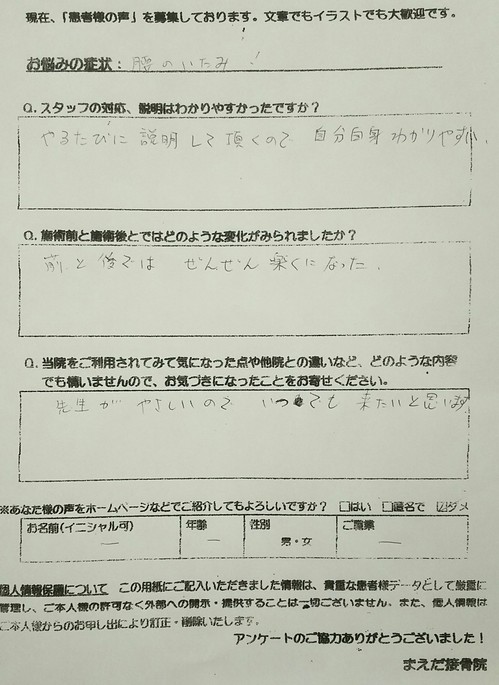 現在、「患者様の声」を募集しております。文章でもイラストでも大歓迎です。
お悩みの症状：腰のいたみ！
Q.スタッフの対応、説明はわかりやすかったですか？
やるたびに説明して頂くので 自分自身わかりやすい.
Q.施術前と施術後とではどのような変化がみられましたか？
前と後では ぜんぜん楽くになった.
Q.当院をご利用されてみて気になった点や他院との違いなど、どのような内容
でも構いませんので、お気づきになったことをお寄せください。
先生が やさしいので いつでも 来たいと思います.
※あなた様の声をホームページなどでご紹介してもよろしいですか？ □はい □匿名で ☑ダメ
お名前(イニシャル可) 年齢 性別 ご職業
― ― 男・女 ―
個人情報保護について この用紙にご記入いただきました情報は、貴重な患者様データとして厳重に
管理し、ご本人様の許可なく外部への開示・提供することは一切ございません。また、個人情報は
ご本人様からのお申し出により訂正・削除いたします。
アンケートのご協力ありがとうございました！
まえだ接骨院